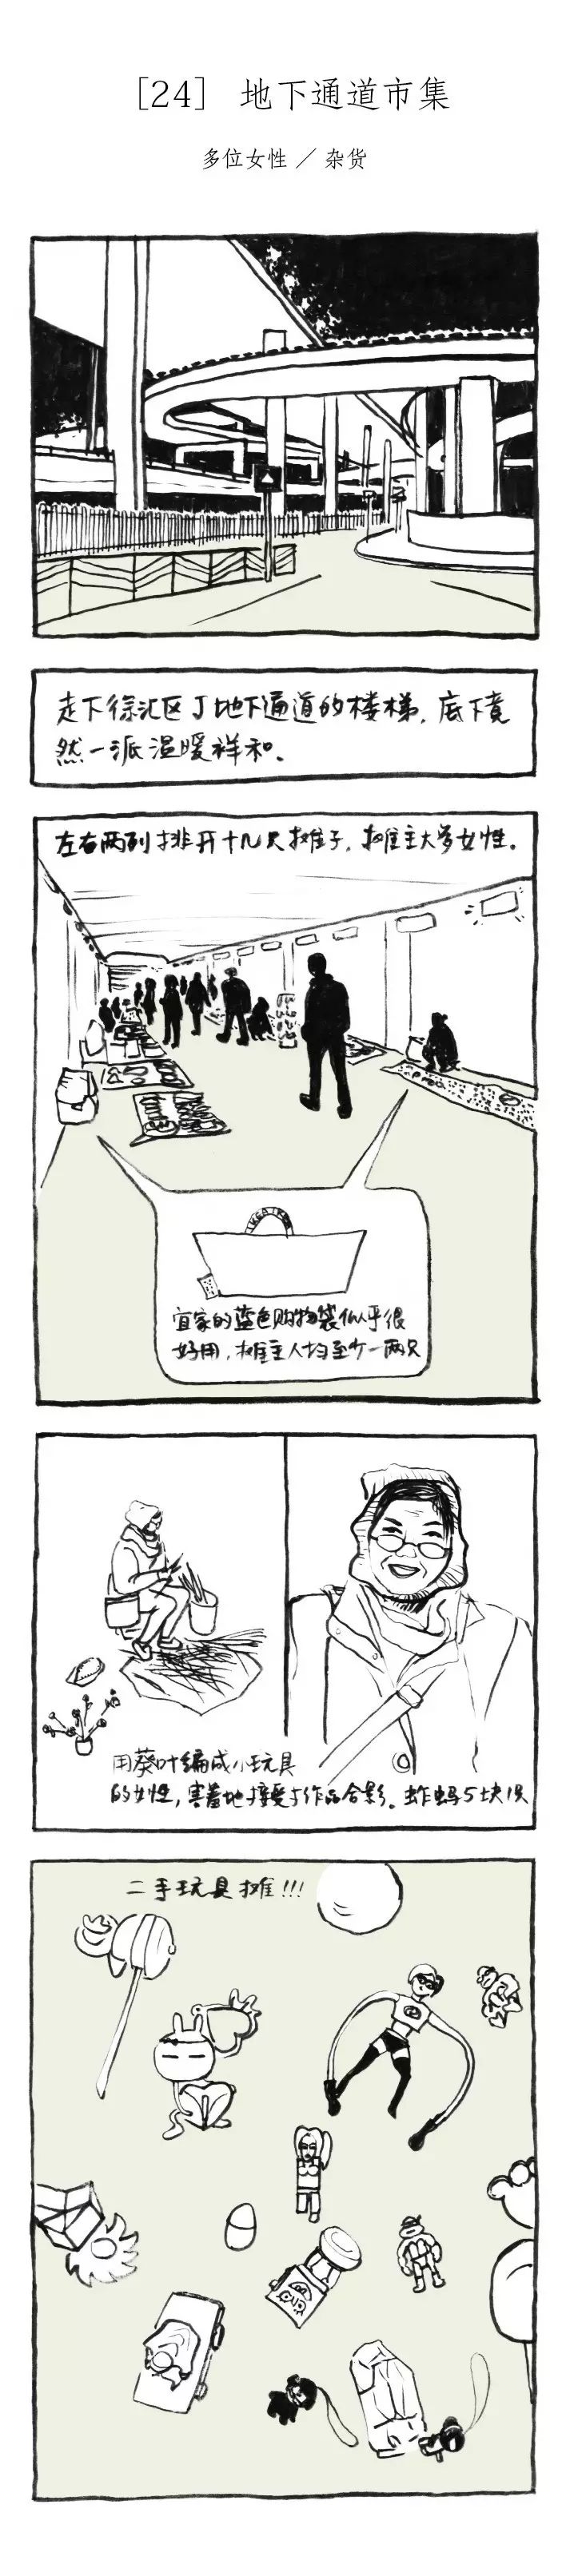 [24] 地下通道市集
多位女性 ／ 杂货
走下徐汇区J地下通道的楼梯，底下竟
然一派温暖祥和。
左右两列排开十几只摊子，摊主大多女性。
IKEA IKEA
宜家的蓝色购物袋似乎很
好用，摊主人均至少一两只
用葵叶编成小玩具
的女性，害羞地接受与作品合影。蚱蜢5块1只
二手玩具摊!!!